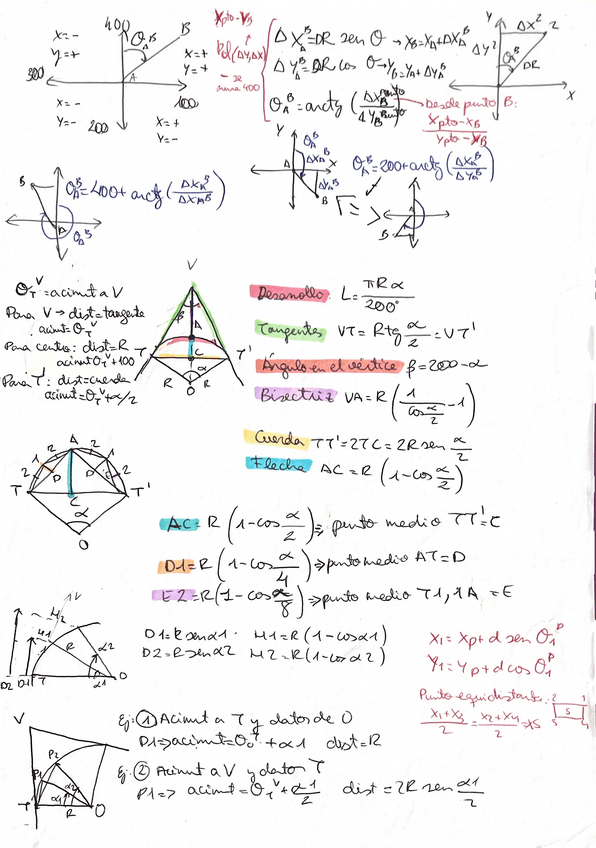 X = -
Y = +
400
θ_A^B
B
X = +
Y = +
A
300
100
X = -
Y = -
200
X = +
Y = -
Xpto - XB
Pol(ΔY, ΔX)
- se
suma 400
ΔX_A^B = DR sen θ → XB = XA + ΔX_A^B
ΔY_A^B = DR cos θ → YB = YA + ΔY_A^B
θ_A^B = arctg (ΔX_B^punto / ΔY_B^punto)
Desde punto B:
Xpto - XB / Ypto - YB
Y
ΔX²
2
ΔY²
θ_A^B
DR
X
B
θ_A^B = 400 + arctg (ΔX_A^B / ΔX_A^B)
A
θ_A^B
Y
θ_A^B
A
ΔX_A^B
X
ΔY_A^B
B
θ_A^B = 200 + arctg (ΔX_A^B / ΔY_A^B)
A
B
θ_T^V = acimut a V
Para V → dist = tangente
acimt = θ_T^V
Para centro: dist = R
acimut θ_T^V + 100
Para T': dist = cuerda
acimut = θ_T^V + α/2
V
β
A
T
C
T'
R
α
R
O
Desarrollo L = πRα / 200°
Tangentes VT = R tg α/2 = VT'
Ángulo en el vértice β = 200 - α
Bisectriz VA = R (1 / cos α/2 - 1)
Cuerda TT' = 2TC = 2R sen α/2
Flecha AC = R (1 - cos α/2)
A
2 2
1 1
D D
2 2
T
C
T'
α
O
AC = R (1 - cos α/2) ⇒ punto medio TT' = C
D1 = R (1 - cos α/4) ⇒ punto medio AT = D
E2 = R (1 - cos α/8) ⇒ punto medio T1, 1A = E
V
H2
H1
R
α2
D2
D1
T
α1
O
D1 = R sen α1 · H1 = R (1 - cos α1)
D2 = R sen α2 H2 = R (1 - cos α2)
X1 = Xp + d sen θ_1^P
Y1 = Yp + d cos θ_1^P
Punto equidistante:
X1 + X3 / 2 = X2 + X4 / 2 = X5
S
V
P2
P1
α2
α1
T
R
O
Ej: ① Acimut a T y datos de O
P1 ⇒ acimut = θ_O^T + α1 dist = R
Ej: ② Acimut a V y datos T
P1 ⇒ acimut = θ_T^V + α1/2 dist = 2R sen α1/2